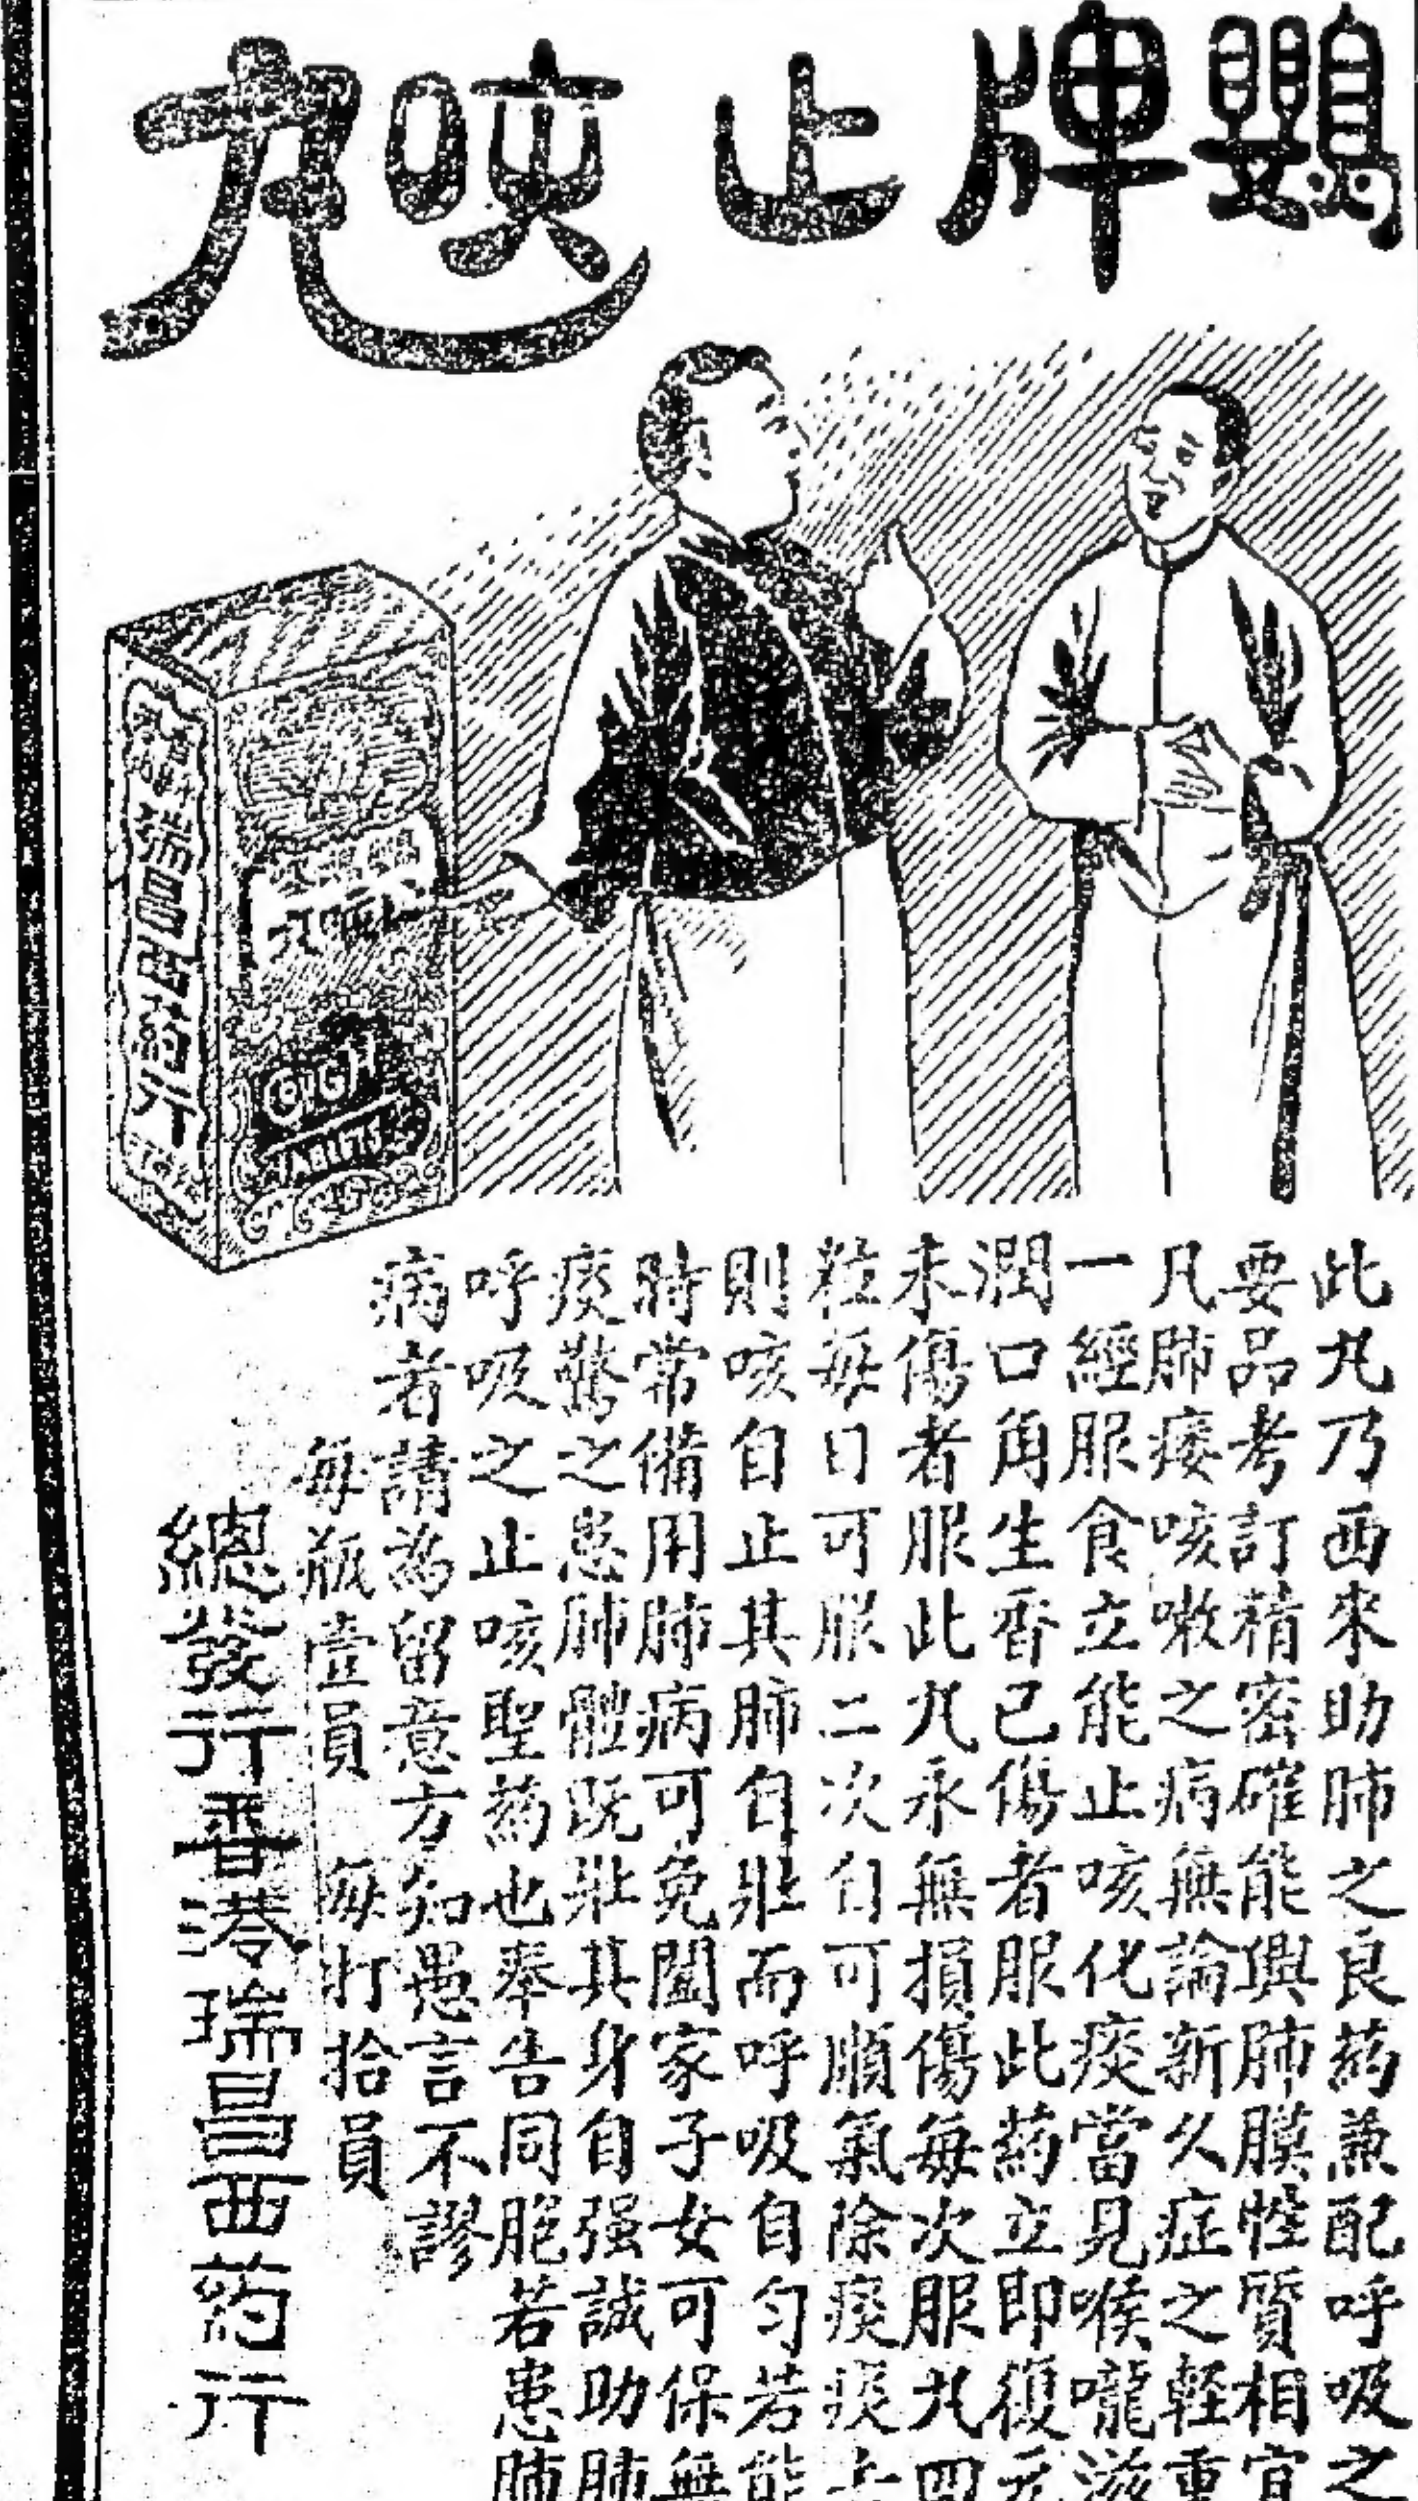 鸚牌止咳丸
瑞昌西葯行
咳丸
COUGH
TABLITS
此丸乃西來助肺之良葯兼配呼吸之
要品考訂精密確能與肺膜性質相宜
凡肺痿咳嗽之病無論新久症之輕重
一經服食立能止咳化痰當見喉嚨滋
潤口角生香已傷者服此葯立即復元
未傷者服此丸永無損傷每次服丸四
粒每日可服二次自可順氣除痰痰去
則咳自止其肺自壯而呼吸自匀若能
時常備用肺病可免闔家子女可保無
痰驚之患肺體既壯其身自强誠助肺
呼吸之止咳聖葯也奉告同胞若患肺
病者請為留意方知愚言不謬
每瓶壹員 每打拾員
總發行香港瑞昌西葯行